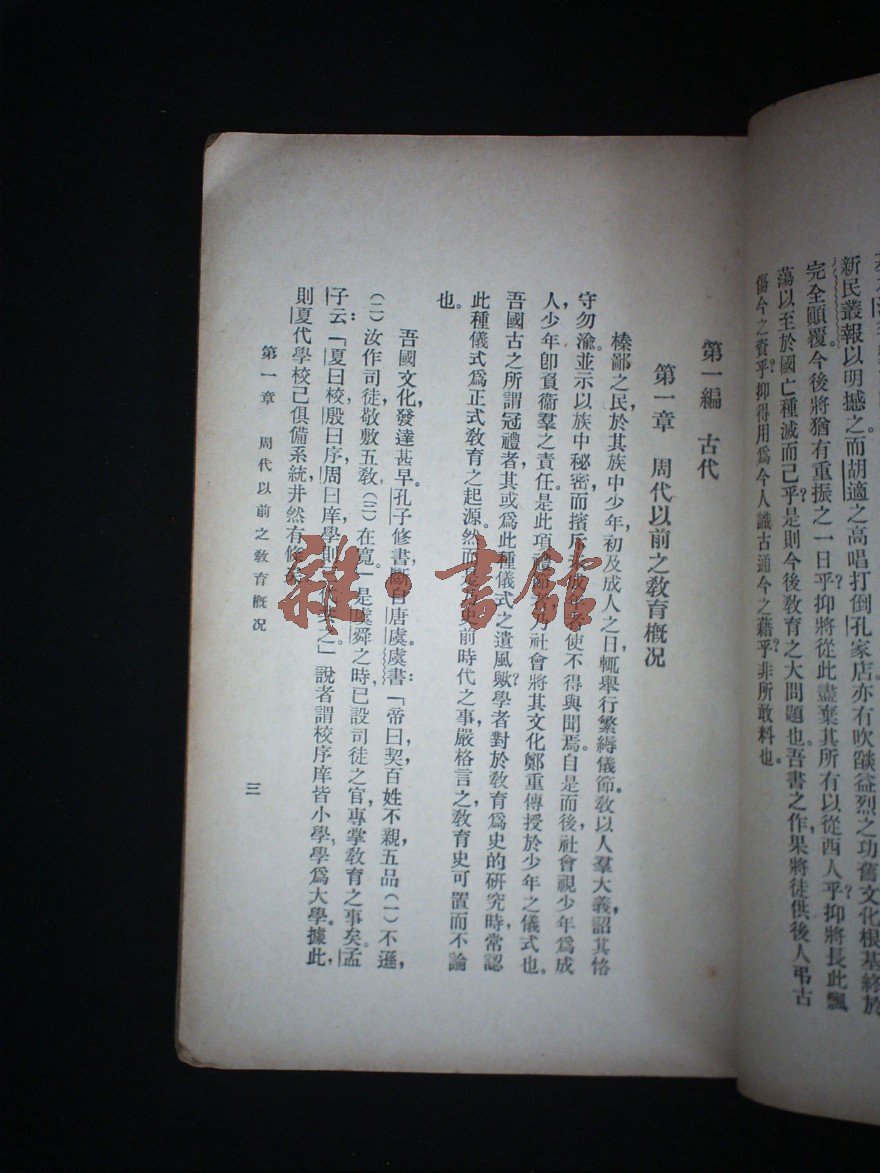 新民叢報以明撼之而胡適之高唱打倒孔家店亦有吹燄益烈之功。舊文化根基終於
完全顚覆。今後將猶有重振之一日乎？抑將從此盡棄其所有以從西人乎？抑將長此飄
蕩以至於國亡種滅而已乎？是則今後敎育之大問題也。吾書之作果將徒供後人弔古
傷今之資乎？抑得用爲今人識古通今之藉乎？非所敢料也。
第一編　古代
第一章　周代以前之敎育槪况
榛鄙之民，於其族中少年，初及成人之日，輒舉行繁縟儀節，敎以人羣大義，詔其恪
守勿渝，並示以族中秘密，而擯斥 使不得與聞焉。自是而後，社會視少年爲成
人，少年卽負衞羣之責任。是此項禮節 社會將其文化鄭重傳授於少年之儀式也。
吾國古之所謂冠禮者，其或爲此種儀式之遺風歟？學者對於敎育爲史的硏究時，常認
此種儀式爲正式敎育之起源。然而 史前時代之事，嚴格言之，敎育史可置而不論
也。
吾國文化發達甚早。孔子修書，斷自唐虞。虞書：「帝曰契百姓不親，五品（一）不遜，
（二）汝作司徒，敬敷五敎，（三）在寬。」是虞舜之時，已設司徒之官，專掌敎育之事矣。孟
子云：「夏曰校，殷曰序，周曰庠，學則 之。」說者謂校序庠皆小學，學爲大學。據此，
則夏代學校已俱備系統，井然有條
第一章　周代以前之敎育槪况
三
雜·書館